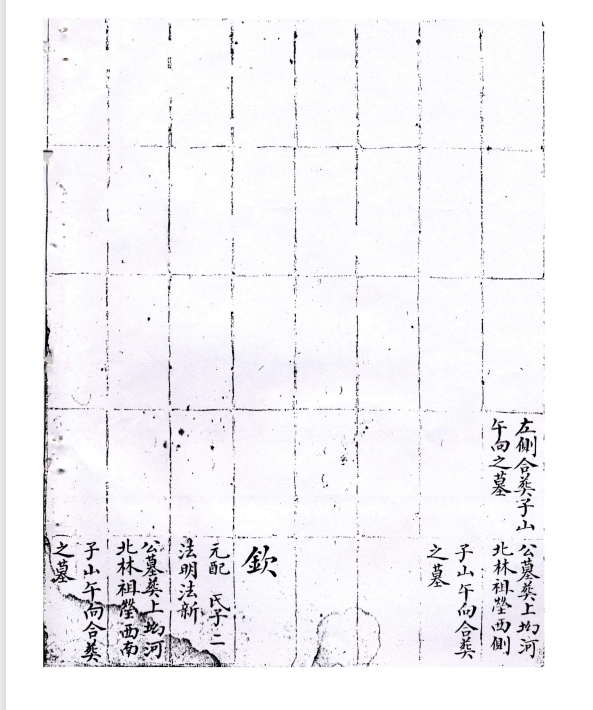 左側合葬子山
午向之墓
公墓葬上均河
北林祖塋西側
子山午向合葬
之墓
欽
元配 氏子二
法明法新
公墓葬上均河
北林祖塋西南
子山午向合葬
之墓